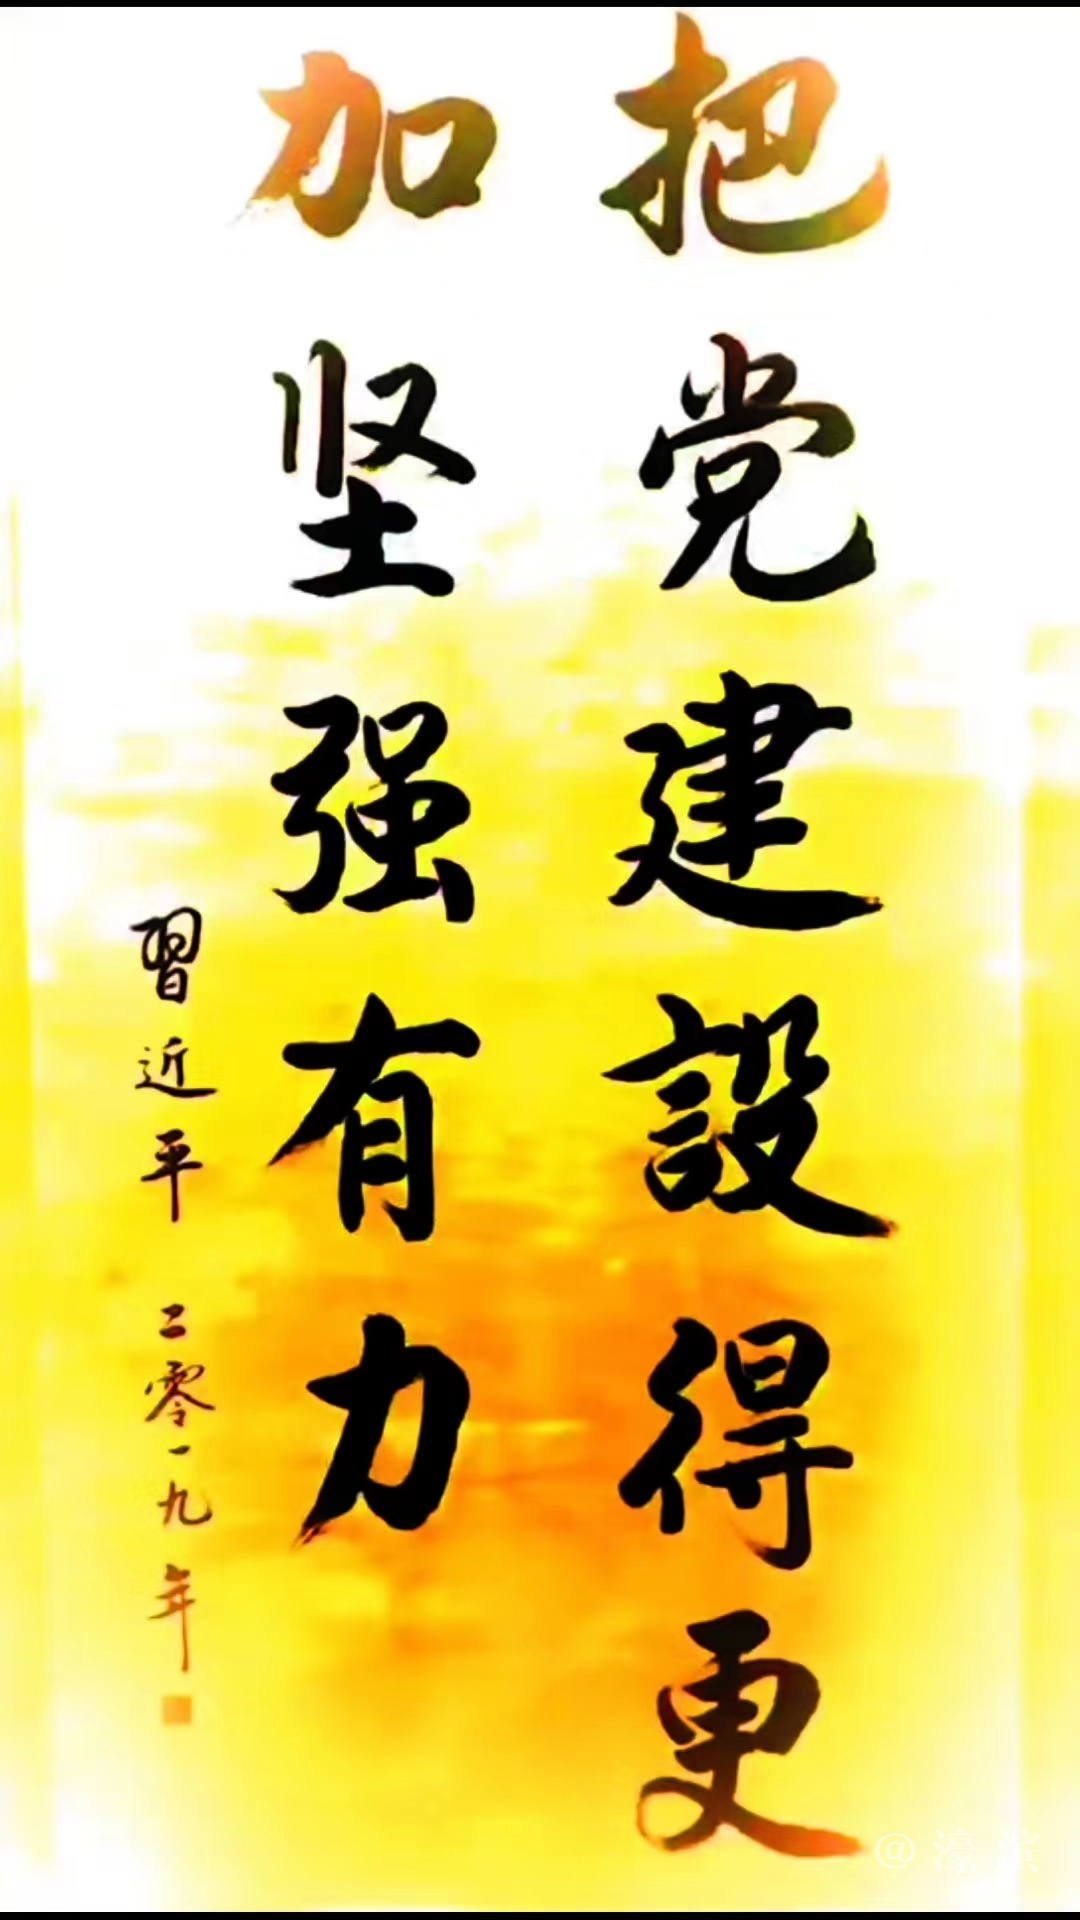 把党建設得更
加坚强有力
習近平 二零一九年
@濠滨